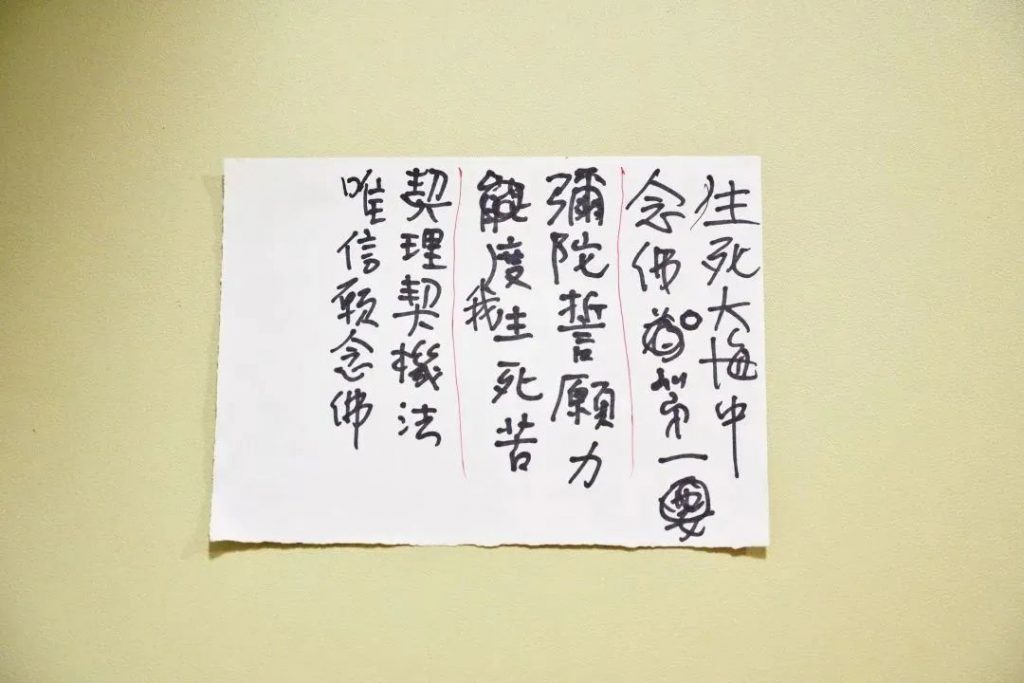 生死大海中
念佛第一
彌陀誓願力
能度我生死苦
契理契機法
唯信願念佛